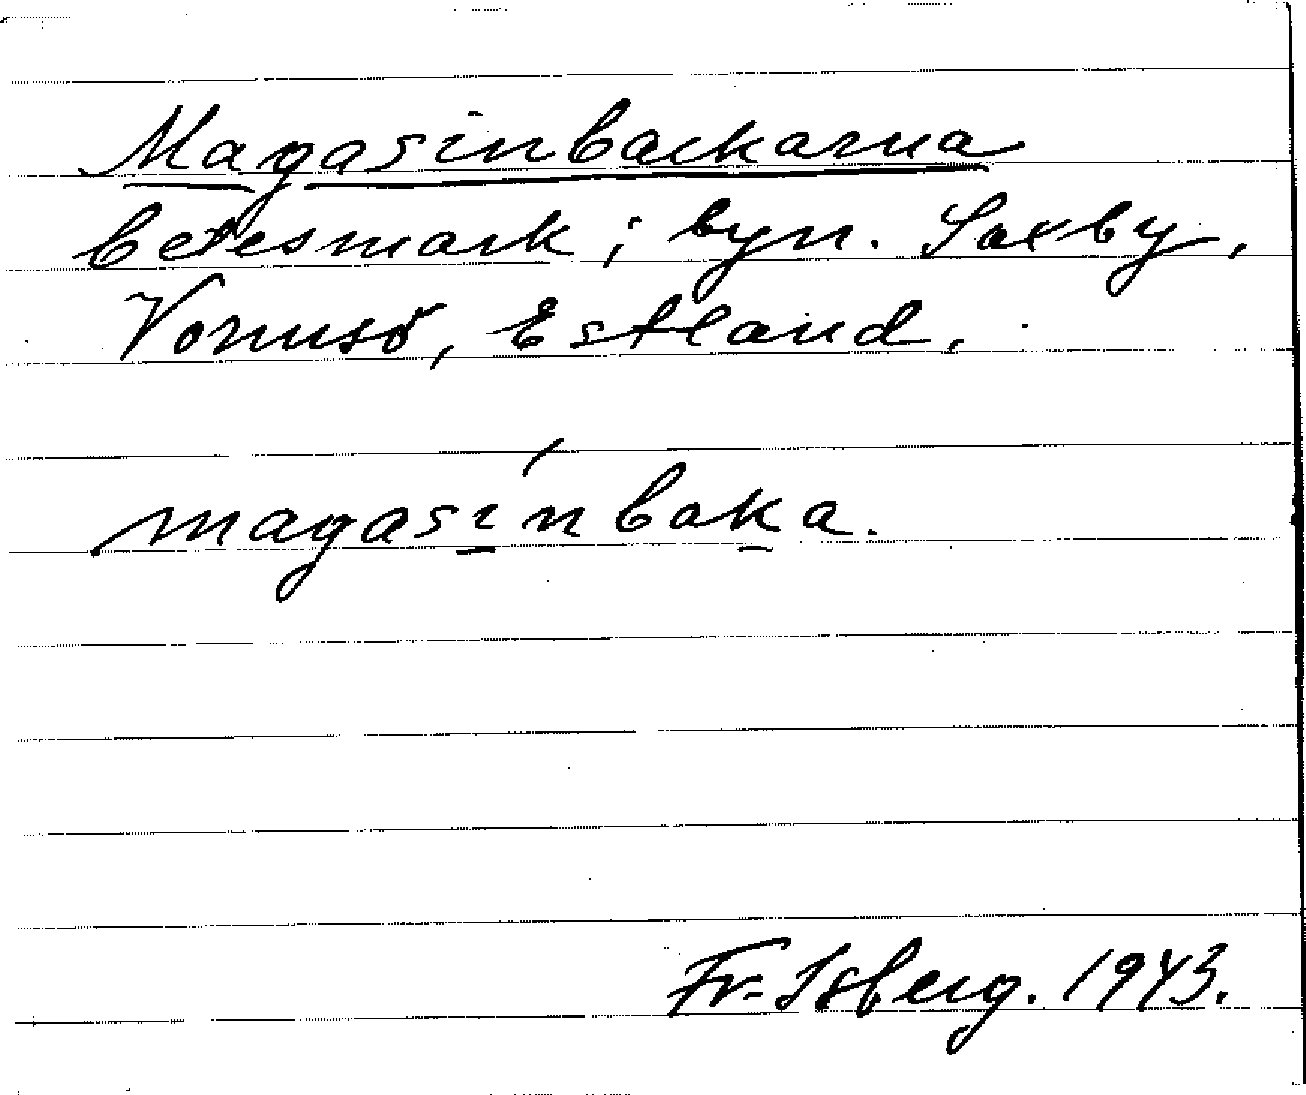 Magasinbackarna
betesmark; byn. Saxby,
Vormsö, Estland.
magasi´nbaka.
Fr. Isberg. 1943.